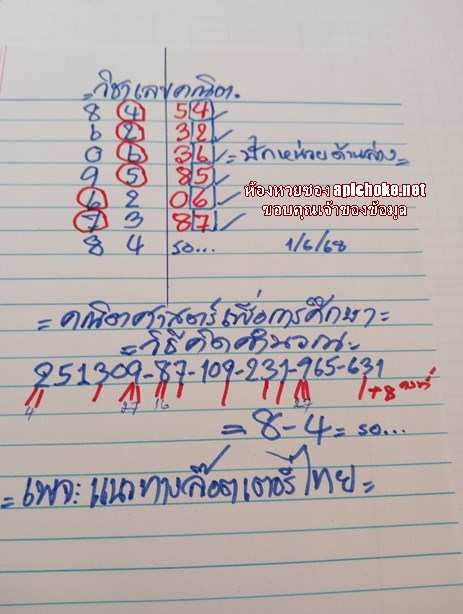 = วิชาเลขคณิต =
8 4 54 ✓
6 2 32 ✓
0 6 36 ✓ = ปักหน่วยด้านล่าง =
9 5 85 ✓
6 2 06 ✓
7 3 87 ✓
8 4 รอ... 1/6/68
ห้องหวยของ apichoke.net
ขอบคุณเจ้าของข้อมูล
= คณิตศาสตร์เพื่อการศึกษา =
= วิธีคิดคำนวณ =
251309-87-109-231-965-631
4 27 16 27 +8 คงที่
= 8-4 = รอ...
= เพจ: แนวทางล๊อตเตอรี่ไทย =